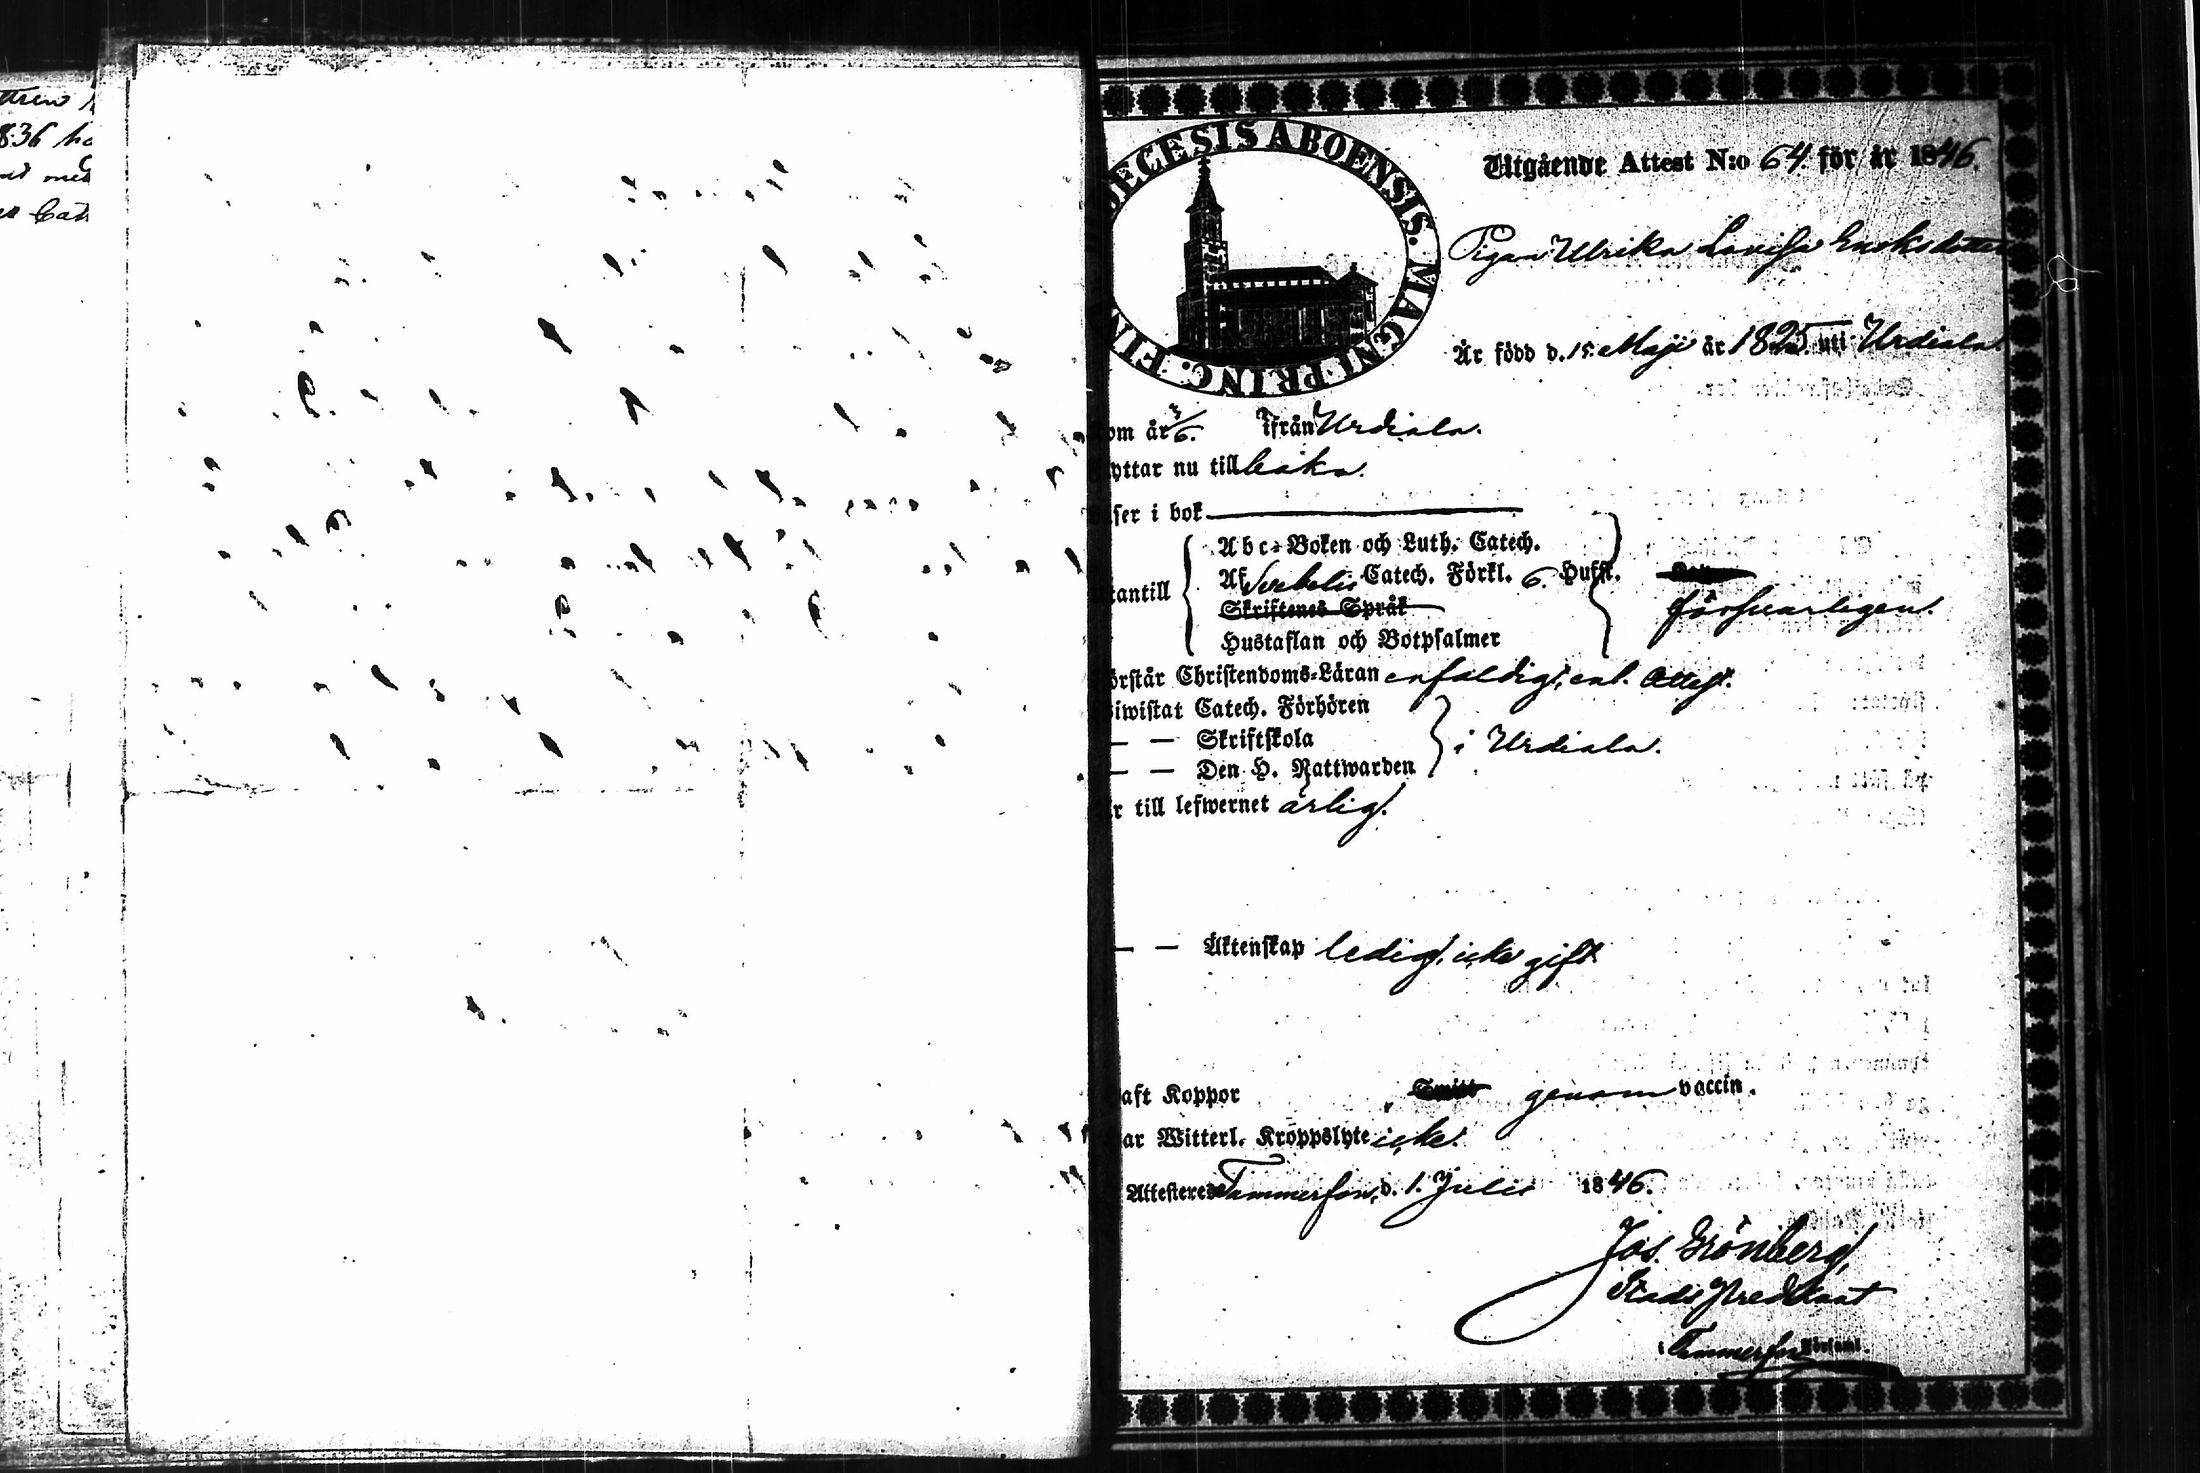 836
med
DIECESIS ABOENSIS. MAGNI PRINC. FIN
Utgående Attest N:o 64 för år 1846.
Pigan Ulrika Lovisa Eriksdotter
Är född d. 15 Maji år 1825 uti Urdiala.
om år 3/6. ifrån Urdiala.
yttar nu tillbaka.
ser i bok
Abc-Boken och Luth. Catech.
tantill
Af Svebelii Catech. Förkl. 6. Hufst.
Skriftenes Språk
försvarligen.
Hustaflan och Botpsalmer
örstår Christendoms-Läran enfaldigt, enl. Attest.
iwistat Catech. Förhören
— — Skriftskola
i Urdiala.
— — Den H. Nattwarden
r till lefwernet ärlig.
— — Äktenskap ledig, icke gift
aft Koppor genom vaccin.
ar Witterl. Kroppslyte icke.
Attesteres Tammerfors, d. 1. Julii 1846.
Jos. Grönberg,
Stads Predikant
i Tammerfors